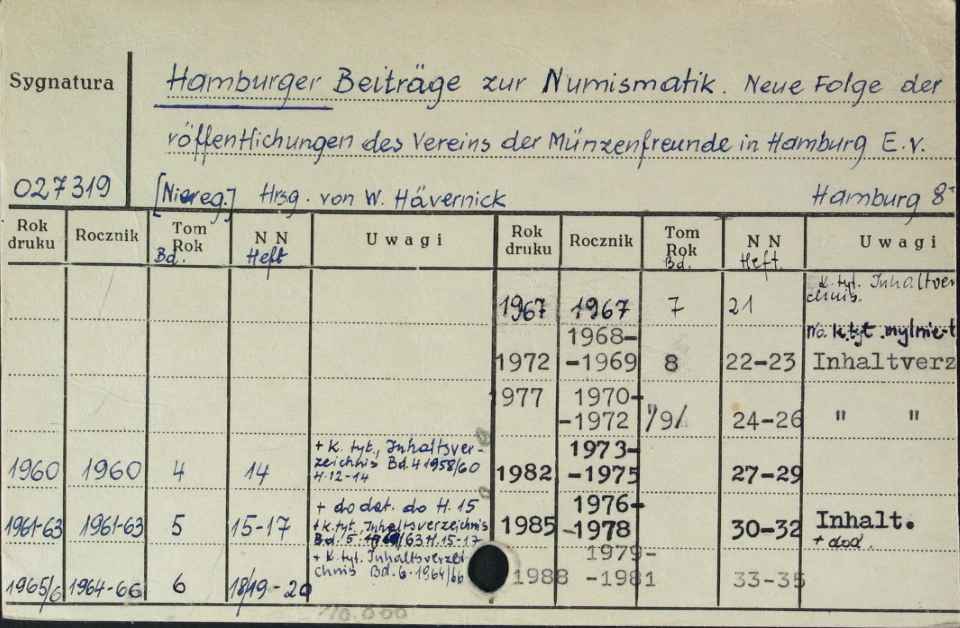 Sygnatura
Hamburger Beiträge zur Numismatik. Neue Folge der
röffentlichungen des Vereins der Münzenfreunde in Hamburg E.v.
027319 [Niereg.] Hrsg. von W. Hävernick Hamburg 8°
Rok druku Rocznik Tom Rok Bd. N N Heft Uwagi Rok druku Rocznik Tom Rok Bd. N N Heft. Uwagi
K. tyt. Inhaltver
1967 1967 7 21 chnis.
1968- K. tyt. mylnie-t
1972 -1969 8 22-23 Inhaltverz
1977 1970-
-1972 /9/ 24-26 " "
+ K. tyt., Inhaltsver- 1973-
1960 1960 4 14 zeichnis Bd. 4 1958/60 1982 -1975 27-29
H. 12-14
+ dodat. do H. 15 1976-
1961-63 1961-63 5 15-17 + k. tyt. Inhaltsverzeichnis 1985 -1978 30-32 Inhalt.
Bd. 5. /63 H. 15-17 + dod.
+ K. tyt. Inhaltsverzei- 1979-
1965/6 1964-66 6 18/19-20 chnis Bd. 6-1964/66 1988 -1981 33-35